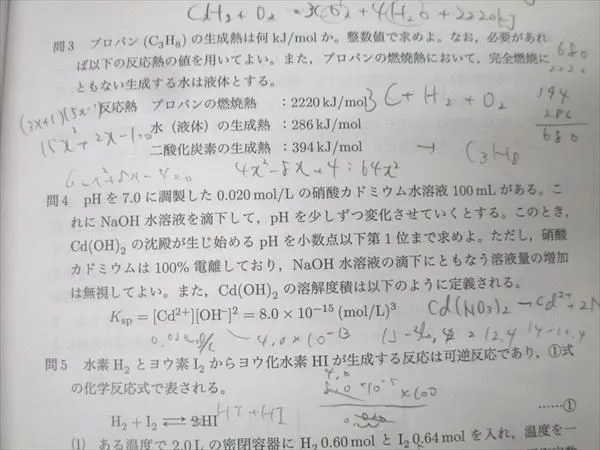 C3H8 + O2 = 3CO2 + 4H2O + 2220kJ
問3 プロパン (C3H8) の生成熱は何 kJ/mol か。整数値で求めよ。なお，必要があれ
ば以下の反応熱の値を用いてよい。また，プロパンの燃焼熱において，完全燃焼に
ともない生成する水は液体とする。
反応熱 プロパンの燃焼熱 ：2220 kJ/mol
水（液体）の生成熱 ：286 kJ/mol
二酸化炭素の生成熱 ：394 kJ/mol
680
3C + H2 + O2
→ C3H8
194
286
680
(3x+1)(5x-1)
15x²+2x-1=0
4x²-8x+4 : 64x²
問4 pH を 7.0 に調製した 0.020 mol/L の硝酸カドミウム水溶液 100 mL がある。こ
れに NaOH 水溶液を滴下して，pH を少しずつ変化させていくとする。このとき，
Cd(OH)2 の沈殿が生じ始める pH を小数点以下第 1 位まで求めよ。ただし，硝酸
カドミウムは 100% 電離しており，NaOH 水溶液の滴下にともなう溶液量の増加
は無視してよい。また，Cd(OH)2 の溶解度積は以下のように定義される。
Ksp = [Cd2+][OH−]2 = 8.0 × 10−15 (mol/L)3
Cd(NO3)2 → Cd2+ + 2N
4.0×10-13
問5 水素 H2 とヨウ素 I2 からヨウ化水素 HI が生成する反応は可逆反応であり，①式
の化学反応式で表される。
H2 + I2 ⇄ 2HI ……①
HI+HI
×100
(1) ある温度で 2.0 L の密閉容器に H2 0.60 mol と I2 0.64 mol を入れ，温度を一